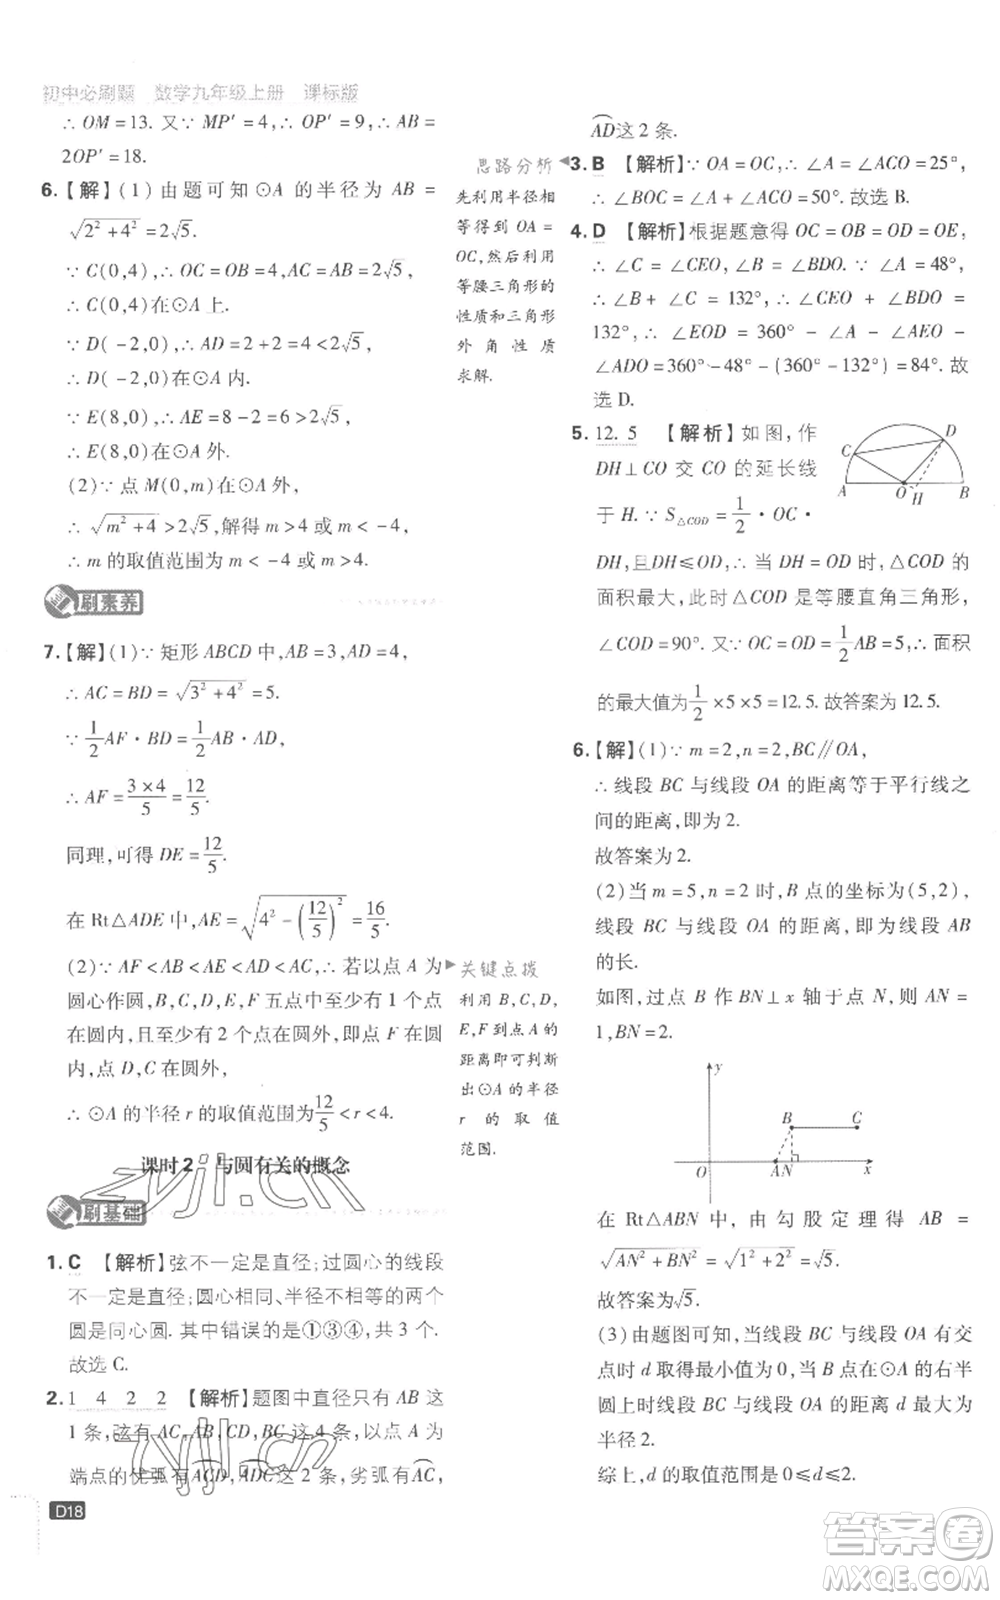 初中必刷题 数学九年级上册 课标版
∴ OM=13. 又∵ MP′=4,∴ OP′=9,∴ AB=
2OP′=18.
6.【解】(1)由题可知⊙A的半径为 AB=
√(2²+4²)=2√5.
∵ C(0,4),∴ OC=OB=4,∴ AC=AB=2√5,
∴ C(0,4)在⊙A上.
∵ D(-2,0),∴ AD=2+2=4<2√5,
∴ D(-2,0)在⊙A内.
∵ E(8,0),∴ AE=8-2=6>2√5,
∴ E(8,0)在⊙A外.
(2)∵ 点 M(0,m)在⊙A外,
∴ √(m²+4)>2√5,解得 m>4 或 m<-4,
∴ m 的取值范围为 m<-4 或 m>4.
刷素养
7.【解】(1)∵ 矩形 ABCD 中,AB=3,AD=4,
∴ AC=BD=√(3²+4²)=5.
∵ 1/2 AF·BD=1/2 AB·AD,
∴ AF=(3×4)/5=12/5.
同理,可得 DE=12/5.
在 Rt△ADE 中,AE=√(4²-(12/5)²)=16/5.
(2)∵ AF<AB<AE<AD<AC,∴ 若以点 A 为
圆心作圆,则 B,C,D,E,F 五点中至少有 1 个点
在圆内,且至少有 2 个点在圆外,即点 F 在圆
内,点 D,C 在圆外,
∴ ⊙A 的半径 r 的取值范围为 12/5<r<4.
课时2 与圆有关的概念
刷基础
1. C 【解析】弦不一定是直径;过圆心的线段
不一定是直径;圆心相同、半径不相等的两个
圆是同心圆. 其中错误的是①③④,共 3 个.
故选 C.
2. 1 4 2 2 【解析】题图中直径只有 AB 这
1 条,弦有 AC,AB,CD,BC 这 4 条,以点 A 为
端点的优弧有 ACD,ADC 这 2 条,劣弧有 AC,
D18
思路分析
先利用半径相
等得到 OA=
OC,然后利用
等腰三角形的
性质和三角形
外角性质
求解.
关键点拨
利用 B,C,D,
E,F 到点 A 的
距离即可判断
出⊙A的半径
r 的取值
范围.
AD这 2 条.
3. B 【解析】∵ OA=OC,∴ ∠A=∠C=25°,
∴ ∠BOC=∠A+∠ACO=50°. 故选 B.
4. D 【解析】根据题意得 OC=OB=OD=OE,
∴ ∠C=∠CEO,∠B=∠BDO. ∵ ∠A=48°,
∴ ∠B+∠C=132°,∴ ∠CEO+∠BDO=
132°,∴ ∠EOD=360°-∠A-∠AEO-
∠ADO=360°-48°-(360°-132°)=84°. 故
选 D.
5. 12.5 【解析】如图,作
DH⊥CO 交 CO 的延长线
于 H. ∵ S△COD=1/2·OC·
DH,且DH≤OD,∴ 当 DH=OD 时,△COD 的
面积最大,此时△COD 是等腰直角三角形,
∠COD=90°. 又∵ OC=OD=1/2 AB=5,∴ 面积
的最大值为1/2×5×5=12.5. 故答案为 12.5.
C
D
A
O
H
B
6.【解】(1)∵ m=2,n=2,BC∥OA,
∴ 线段 BC 与线段 OA 的距离等于平行线之
间的距离,即为 2.
故答案为 2.
(2)当 m=5,n=2 时,B 点的坐标为(5,2),
线段 BC 与线段 OA 的距离,即为线段 AB
的长.
如图,过点 B 作 BN⊥x 轴于点 N,则 AN=
1,BN=2.
y
B
C
O
A
N
x
在 Rt△ABN 中,由勾股定理得 AB=
√(AN²+BN²)=√(1²+2²)=√5.
故答案为√5.
(3)由题图可知,当线段 BC 与线段 OA 有交
点时 d 取得最小值为 0,当 B 点在⊙A的右半
圆上时线段 BC 与线段 OA 的距离 d 最大为
半径 2.
综上,d 的取值范围是 0≤d≤2.
zyjl.cn
zyjl.cn
答案卷
MXQE.COM